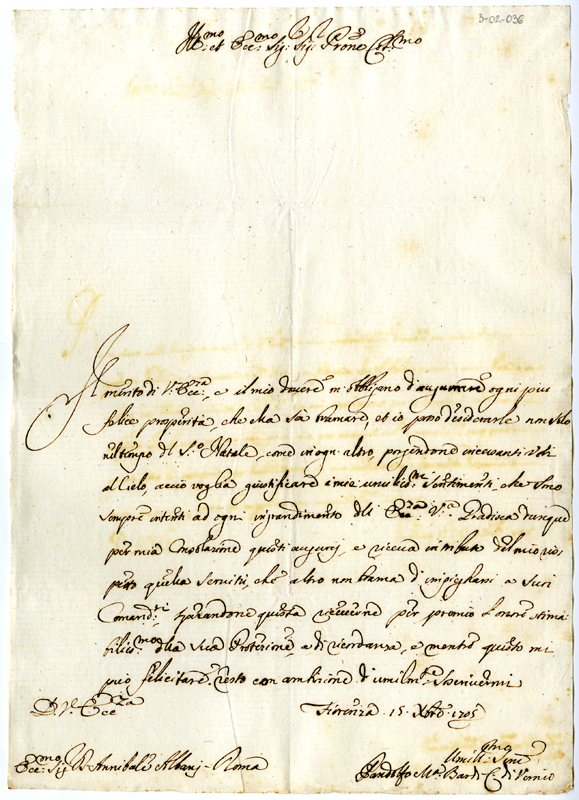 3-02-036
Ill.mo et Ecc.mo Sig. Sig. Prone Col.mo
Il merito di V. Ecc.za, e il mio dovere m'obbligano d'augurarle ogni più
felice prosperità, che ella sà bramare, et io posso desiderarle non solo
nel tempo del S.o Natale, come in ogn'altro, porgendone incessanti voti
al Cielo, acciò voglia giustificare i miei umiliss.mi Sentimenti, che sono
sempre intenti ad ogni ingrandimento dell' Ecc.za V.a Gradisca dunque
per mia consolazione questi augurij, e riceva in tributo del mio ris-
petto quella servitù, che altro non brama d'impiegharsi a suoi
Comand.ti sperandone questa riceverne per premio l'onore stima-
biliss.mo della sua Protezione, e di vicendanza, e mentre questo mi
può felicitare, resto con ambizione di umilm.te
D. V. Ecc.za
Fiorenza 15 Xbre 1705
Umiliss.mo
Ecc.mo Sig. D. Annibale Albani - Roma
Pandolfo M.a Bardi C. di Vernio